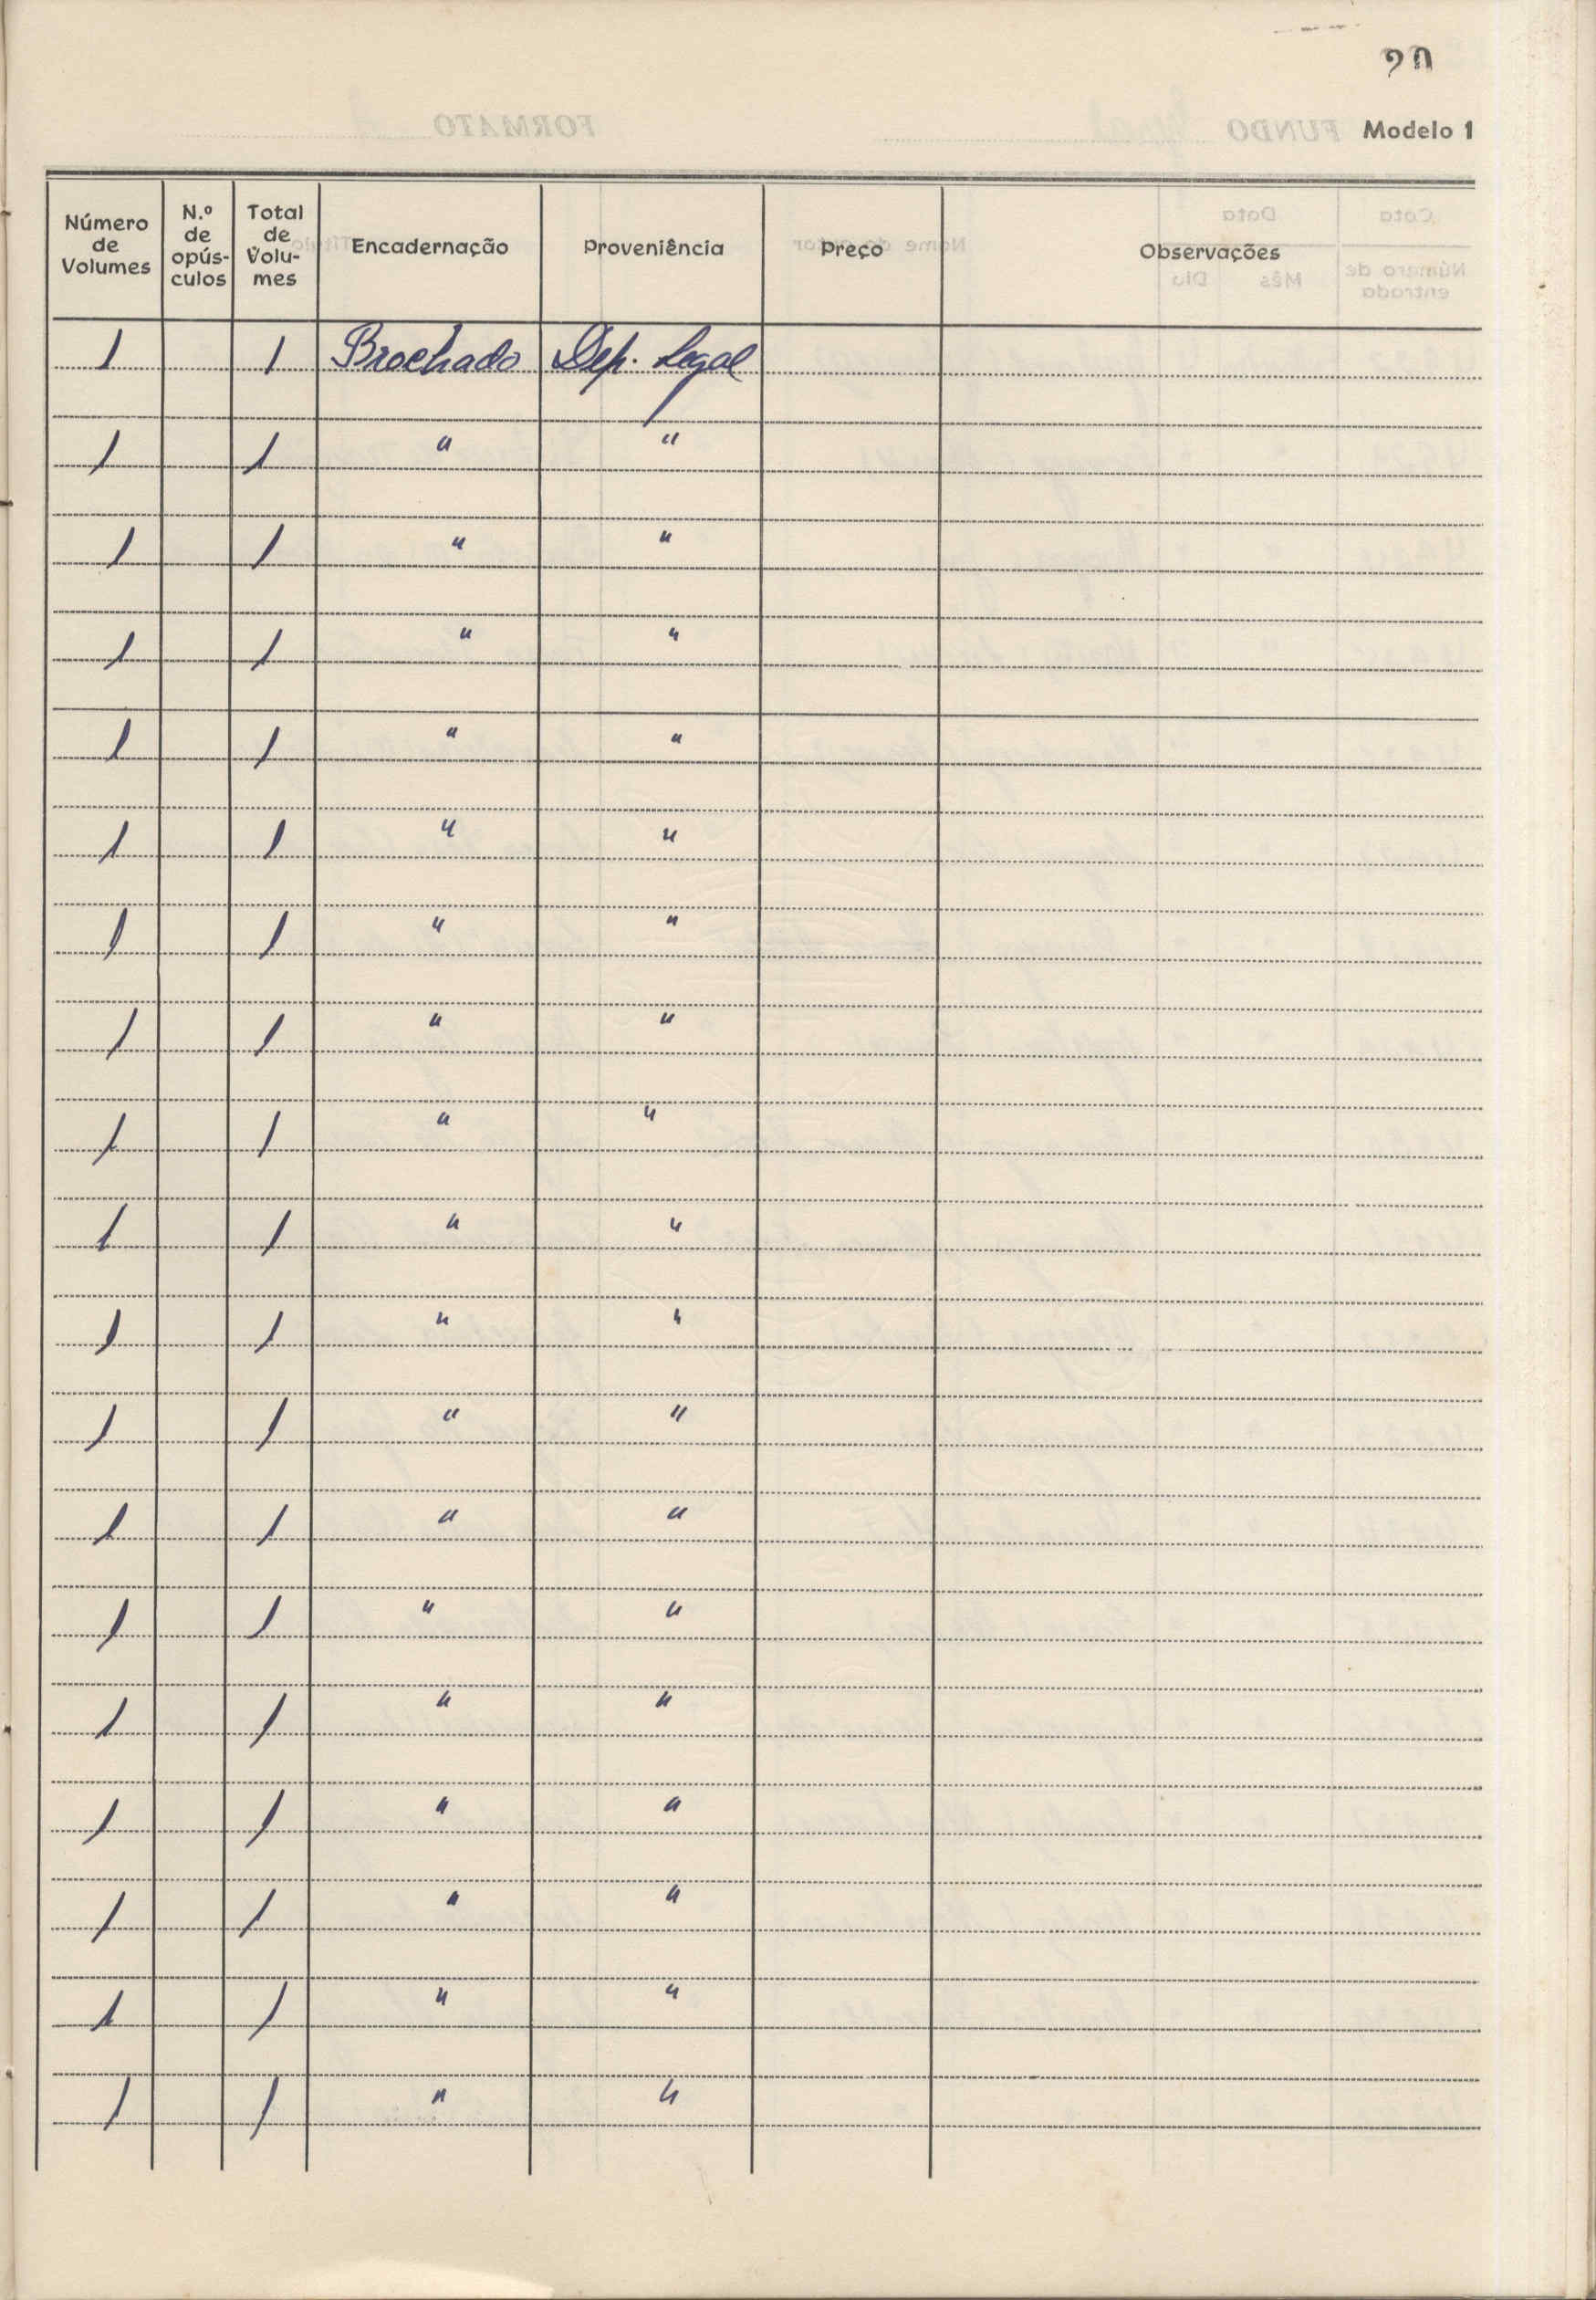 20
Modelo 1
Número de Volumes | N.º de opús-culos | Total de Volu-mes | Encadernação | Proveniência | Preço | Observações
1 | | 1 | Brochado | Dep. Legal
1 | | 1 | " | "
1 | | 1 | " | "
1 | | 1 | " | "
1 | | 1 | " | "
1 | | 1 | " | "
1 | | 1 | " | "
1 | | 1 | " | "
1 | | 1 | " | "
1 | | 1 | " | "
1 | | 1 | " | "
1 | | 1 | " | "
1 | | 1 | " | "
1 | | 1 | " | "
1 | | 1 | " | "
1 | | 1 | " | "
1 | | 1 | " | "
1 | | 1 | " | "
1 | | 1 | " | "